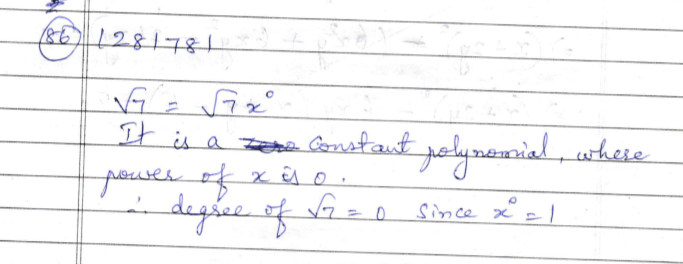 86 1281781
√7 = √7 x⁰
It is a constant polynomial, where
power of x is 0.
∴ degree of √7 = 0 since x⁰ = 1